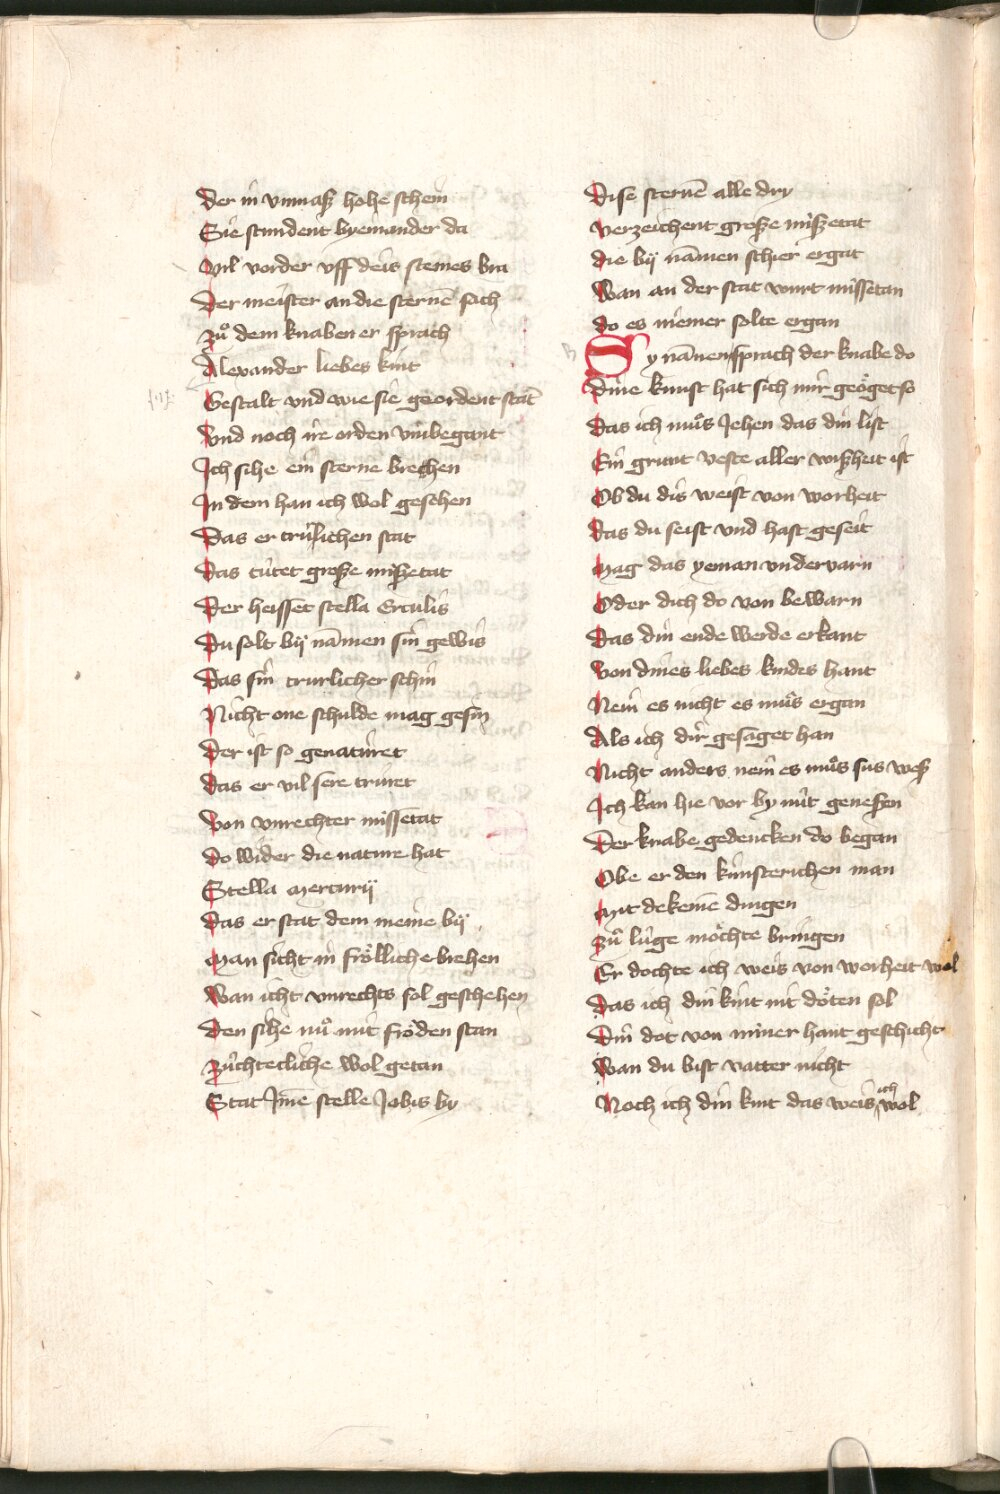 Der in vnmasz hohe schein
Sie stundent by einander da
Vil vorder vff deis sternes bra
Der meister an die sternē sach
Zuͦ dem knaben er sprach
Alexander liebes kint
Gestalt vnd wie sie geordent sint
Vnd noch ire orden vmbegant
Ich sihe ein sterne brechen
In dem han ich wol gesehen
Das er trülichen stat
Das tútet große mißetat
Der heisset stella Erculis
Du solt bÿ nāmen sin gewis
Das sin trurlicher schin
Nicht one schulde mag gesin
Der ist so genaturet
Das er vil sere truret
Von vnrechter missetat
Do wider die nature hat
Stella mercurÿ
Das er stat dem meine bÿ
Man sicht in froͤlliche brehen
Wan icht vnrechts sol geschehen
Den sihe nuͦ mit froͤden stan
Zúchtecliche wol getan
Stat Jme stelle Jobis by
Dise sternē alle dry
Verzeichent große mißetat
Die bÿ nāmen schier ergat
Wan an der stat wurt missetan
Do es niemer solte ergan
Sy nāmen sprach der knabe do
Dine kunst hat sich mir geoͤget so
Das ich muͦs Jehen das din list
Ein grunt veste aller wißheit ist
Ob du dis weist von worheit
Das du seist vnd hast geseit
Mag das yeman vndervarn
Oder dich do von bewarn
Das din ende werde erkant
Von dines liebes kindes hant
Nein es nicht es muͦs ergan
Als ich dir gesaget han
Nicht anders nein es muͦs sus weß
Ich kan hie vor by nút geneßen
Der knabe gedencken do began
Obe er den kúnsterichen man
Mit dekeinē dingen
Zuͦ lúge moͤchte bringen
Er dochte ich weis von worheit wol
Das ich din kint nit doͤten sol
Din dot von miner hant geschicht
Wan du bist vatter nicht
Noch ich din kint das weis ich wol